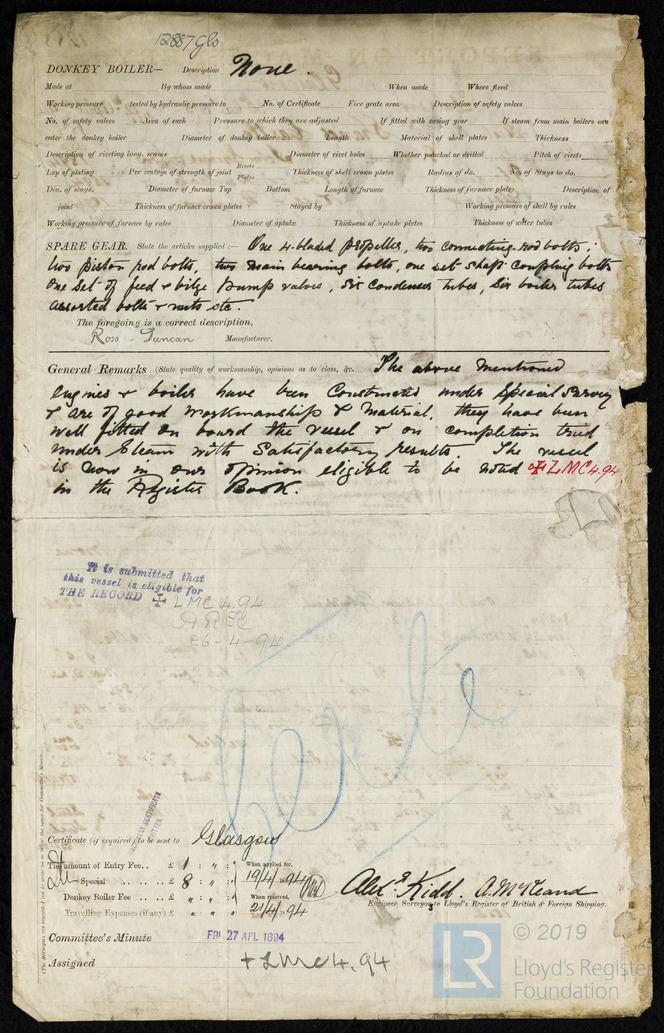 12887 Gls
DONKEY BOILER— Description None.
Made at By whom made When made Where fixed
Working pressure tested by hydraulic pressure to No. of Certificate Fire grate area Description of safety valves
No. of safety valves Area of each Pressure to which they are adjusted If fitted with easing gear If steam from main boilers can
enter the donkey boiler Diameter of donkey boiler Length Material of shell plates Thickness
Description of riveting long. seams Diameter of rivet holes Whether punched or drilled Pitch of rivets
Lap of plating Per centage of strength of joint Rivets Plates Thickness of shell crown plates Radius of do. No. of Stays to do.
Dia. of stays. Diameter of furnace Top Bottom Length of furnace Thickness of furnace plates Description of
joint Thickness of furnace crown plates Stayed by Working pressure of shell by rules
Working pressure of furnace by rules Diameter of uptake Thickness of uptake plates Thickness of water tubes
SPARE GEAR. State the articles supplied:— One 4-bladed propeller, two connecting rod bolts;
two piston rod bolts, two main bearing bolts, one set shaft coupling bolts
One set of feed & bilge pump valves, six condenser tubes, six boiler tubes
assorted bolts & nuts etc.
The foregoing is a correct description,
Ross & Duncan Manufacturer.
General Remarks (State quality of workmanship, opinions as to class, &c. The above mentioned
engines & boiler have been constructed under Special Survey
& are of good workmanship & material, they have been
well fitted on board the vessel & on completion tried
under steam with satisfactory results. The vessel
is now in our opinion eligible to be noted ✠ LMC 4.94
in the Register Book.
It is submitted that
this vessel is eligible for
THE RECORD ✠ LMC 4.94
26-4-94
Certificate (if required) to be sent to Glasgow
The amount of Entry Fee.. £ 1 : " : " When applied for,
Special .. £ 8 : " : " 19/4/94
Donkey Boiler Fee .. £ " : " : " When received,
Travelling Expenses (if any) £ " : " : " 21/4/94
Alex. Kidd. A. McKeand
Engineer Surveyors to Lloyd's Register of British & Foreign Shipping.
Committee's Minute FRI 27 APL 1894
Assigned + LMC 4.94
© 2019
LR Lloyd's Register
Foundation